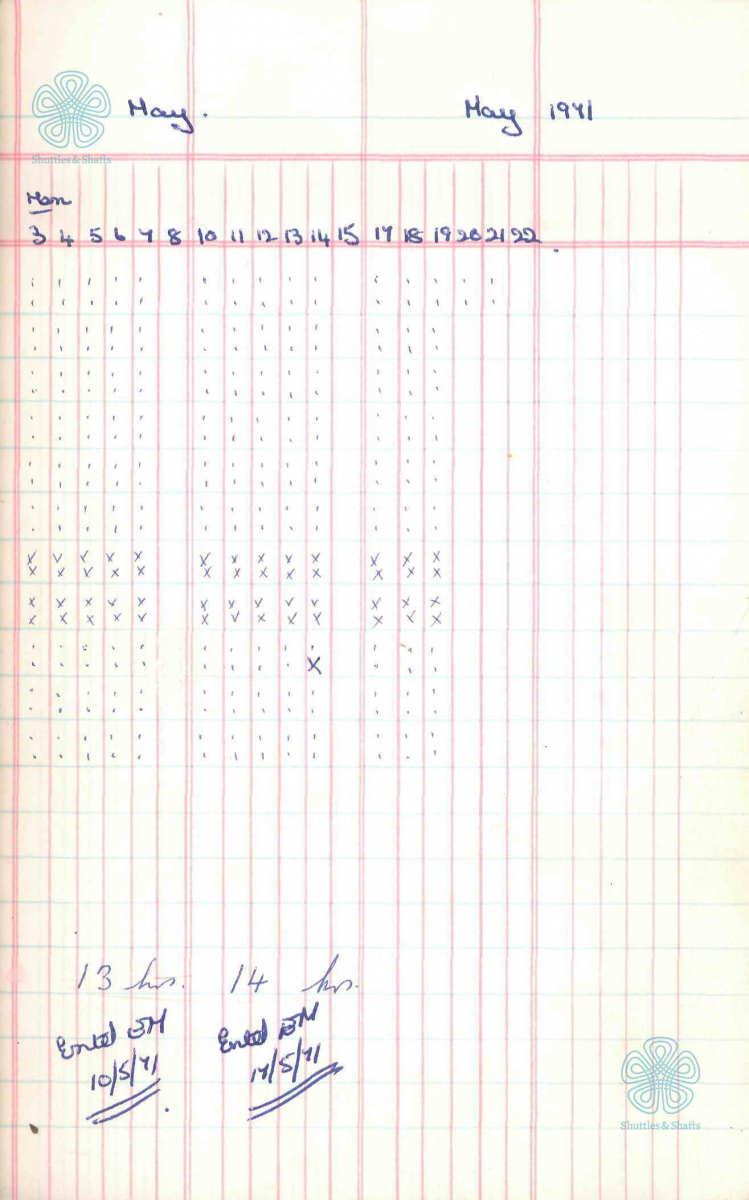 May. May 1971
Shuttles & Shafts
Mon
3 4 5 6 7 8 10 11 12 13 14 15 17 18 19 20 21 22
x v v x x x x x x x x x x
x x v x x x x x x x x x x
x x x v x x v v v v x x x
x x x x v x v x x v x v x
x
13 hrs. 14 hrs.
10/5/71 17/5/71
Shuttles & Shafts